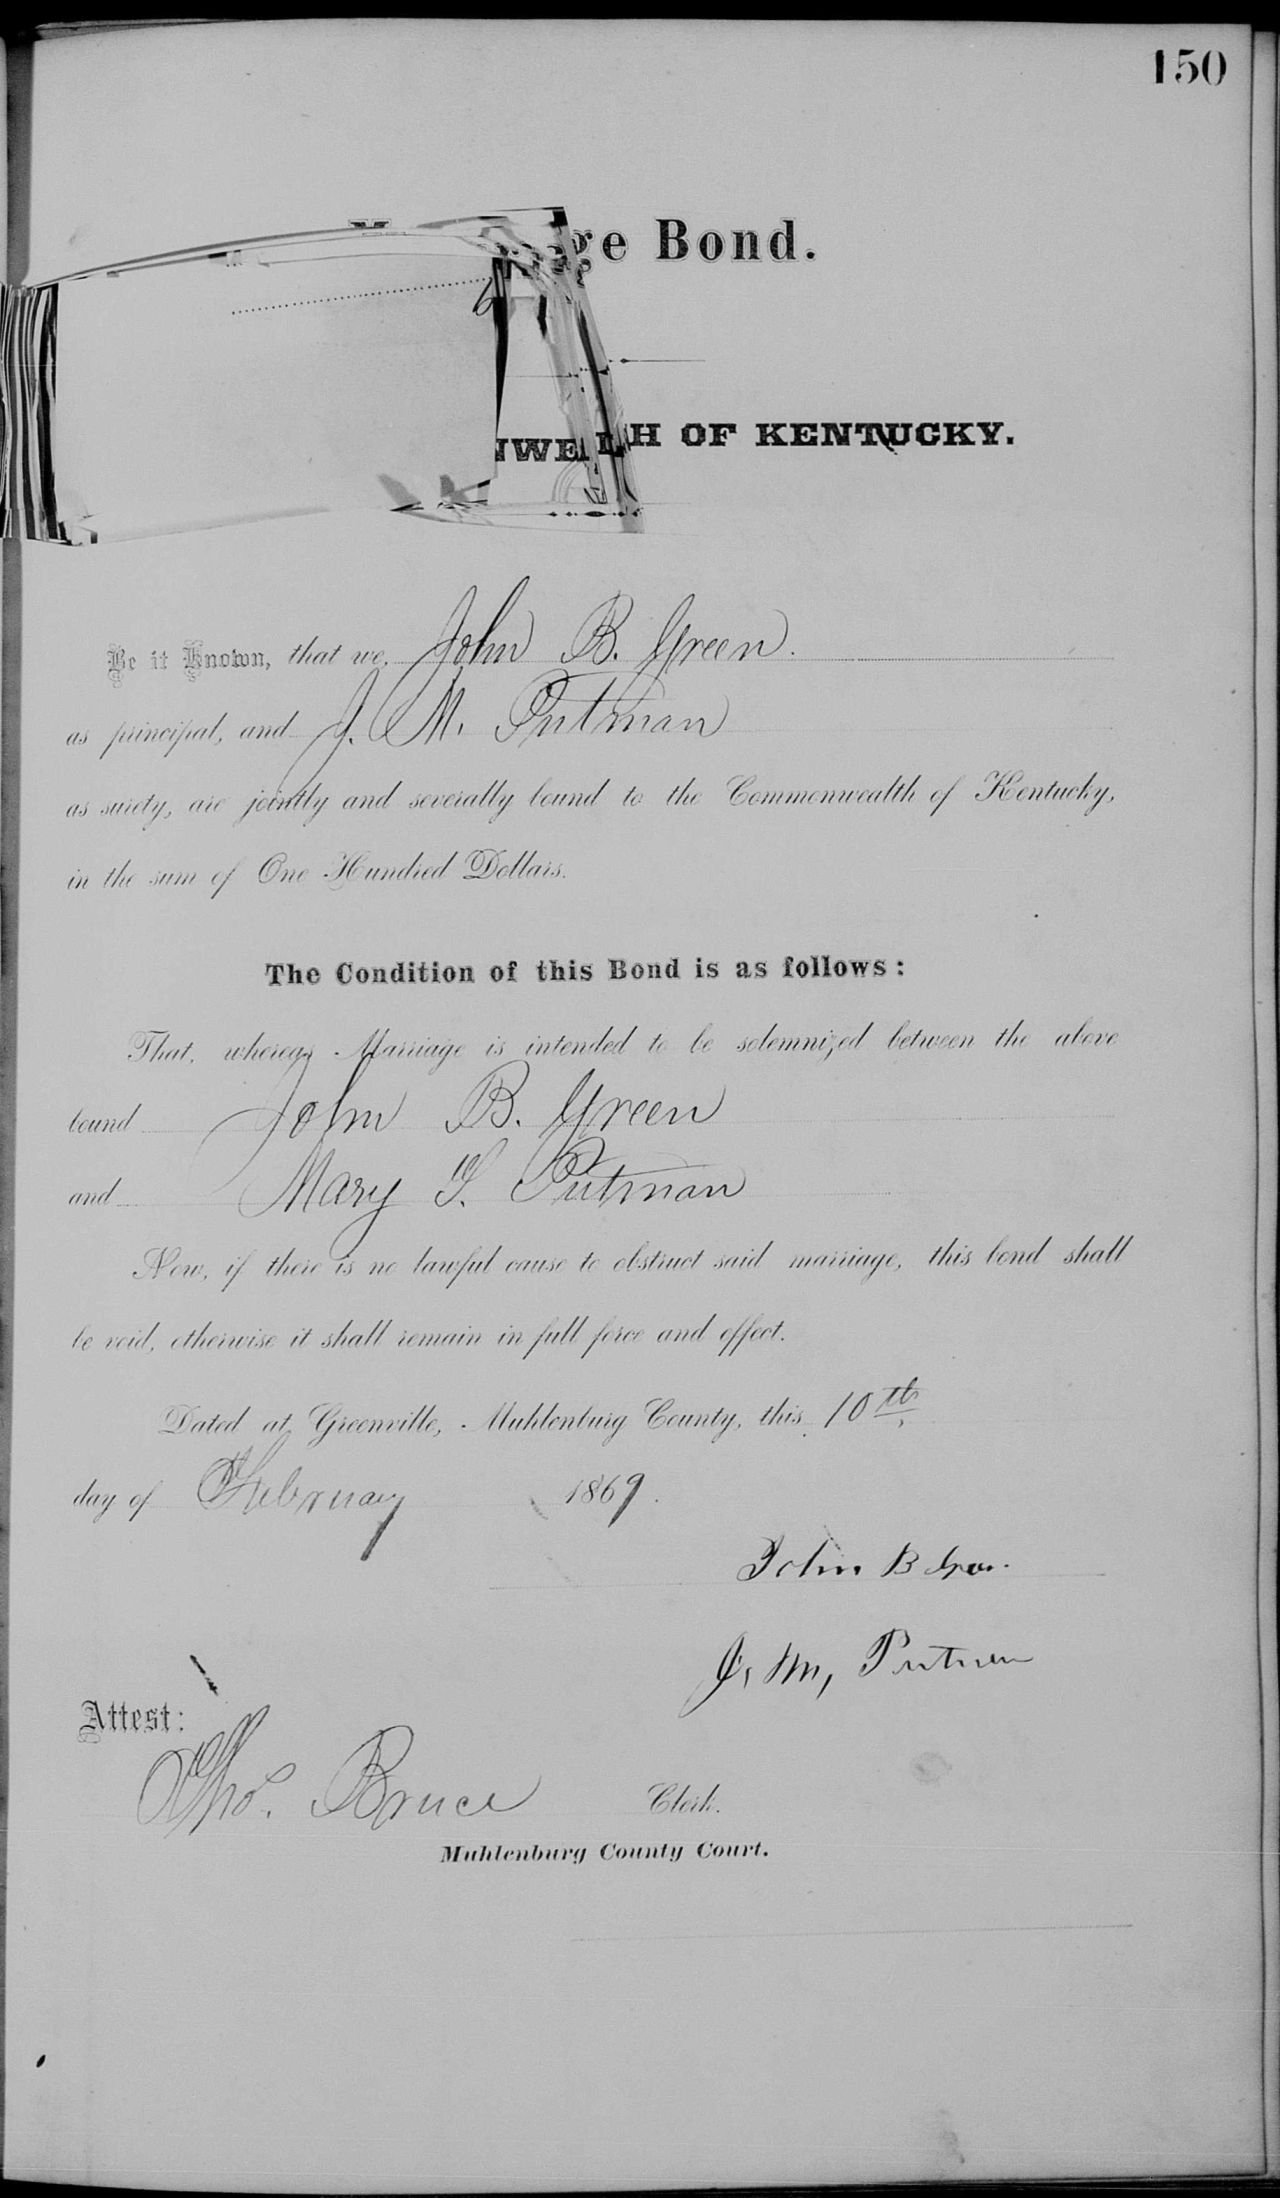 150
ge Bond.
H OF KENTUCKY.
Be it Known, that we, John B. Green.
as principal, and J. M. Putman
as surety, are jointly and severally bound to the Commonwealth of Kentucky,
in the sum of One Hundred Dollars.
The Condition of this Bond is as follows:
That, whereas Marriage is intended to be solemnized between the above
bound John B. Green
and Mary S. Putman
Now, if there is no lawful cause to obstruct said marriage, this bond shall
be void, otherwise it shall remain in full force and effect.
Dated at Greenville, Muhlenburg County, this 10th
day of February 1869.
John B
J. M, Putman
Attest:
Tho. Bruce Clerk.
Muhlenburg County Court.